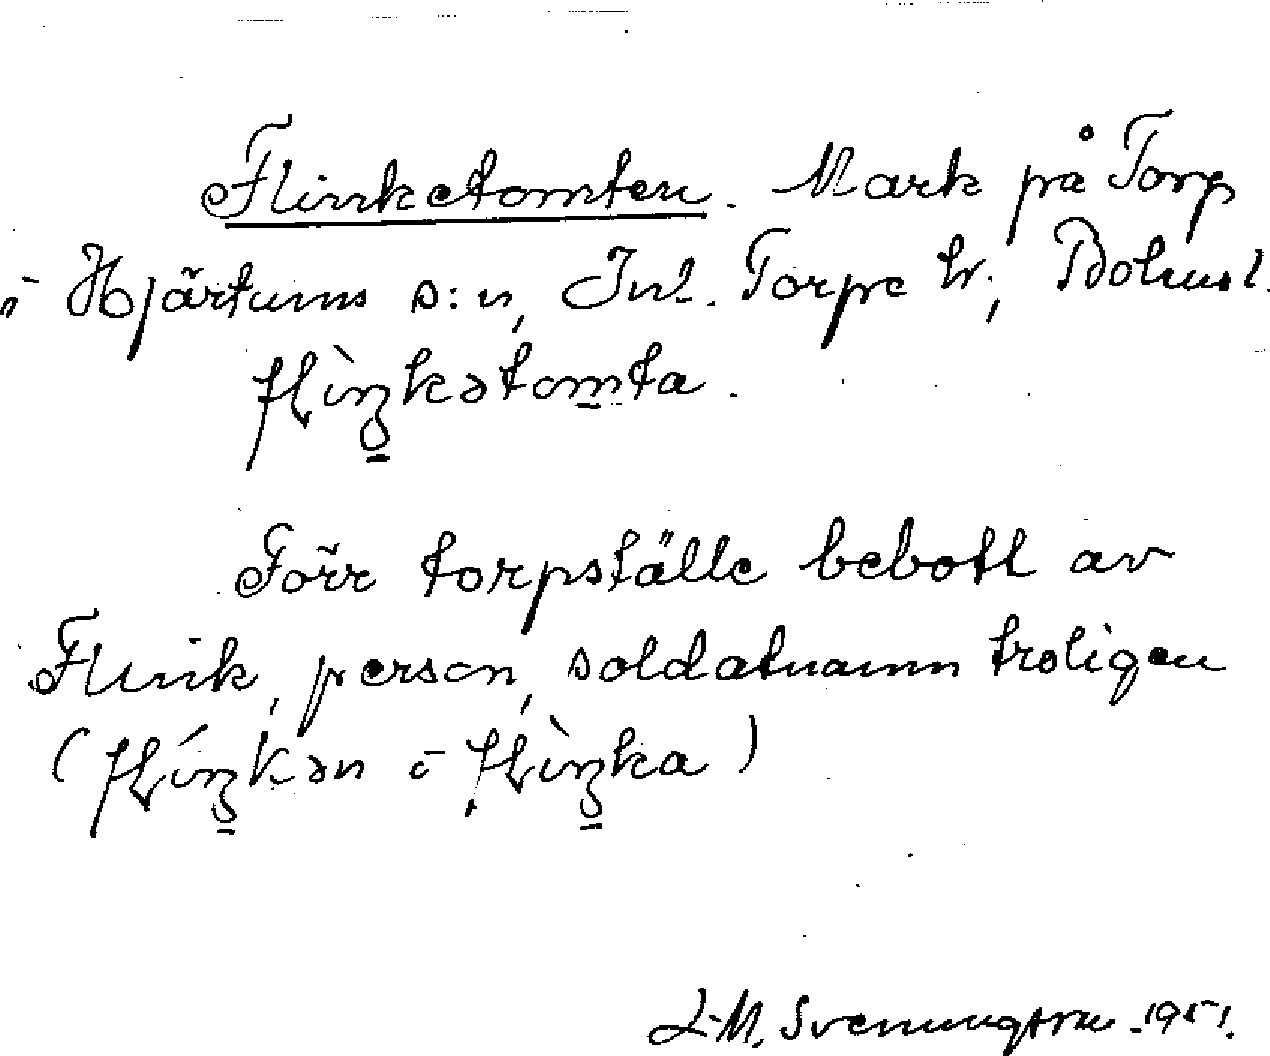 Flinketomten. Mark på Torp
i Hjärtums s:n, Inl. Torpe hr, Bohusl.
flìŋkətomta.
Förr torpställe bebott av
Flink, person, soldatnamn troligen
(flíŋkən i flìŋka)
L-M. Svenungsson 1951.